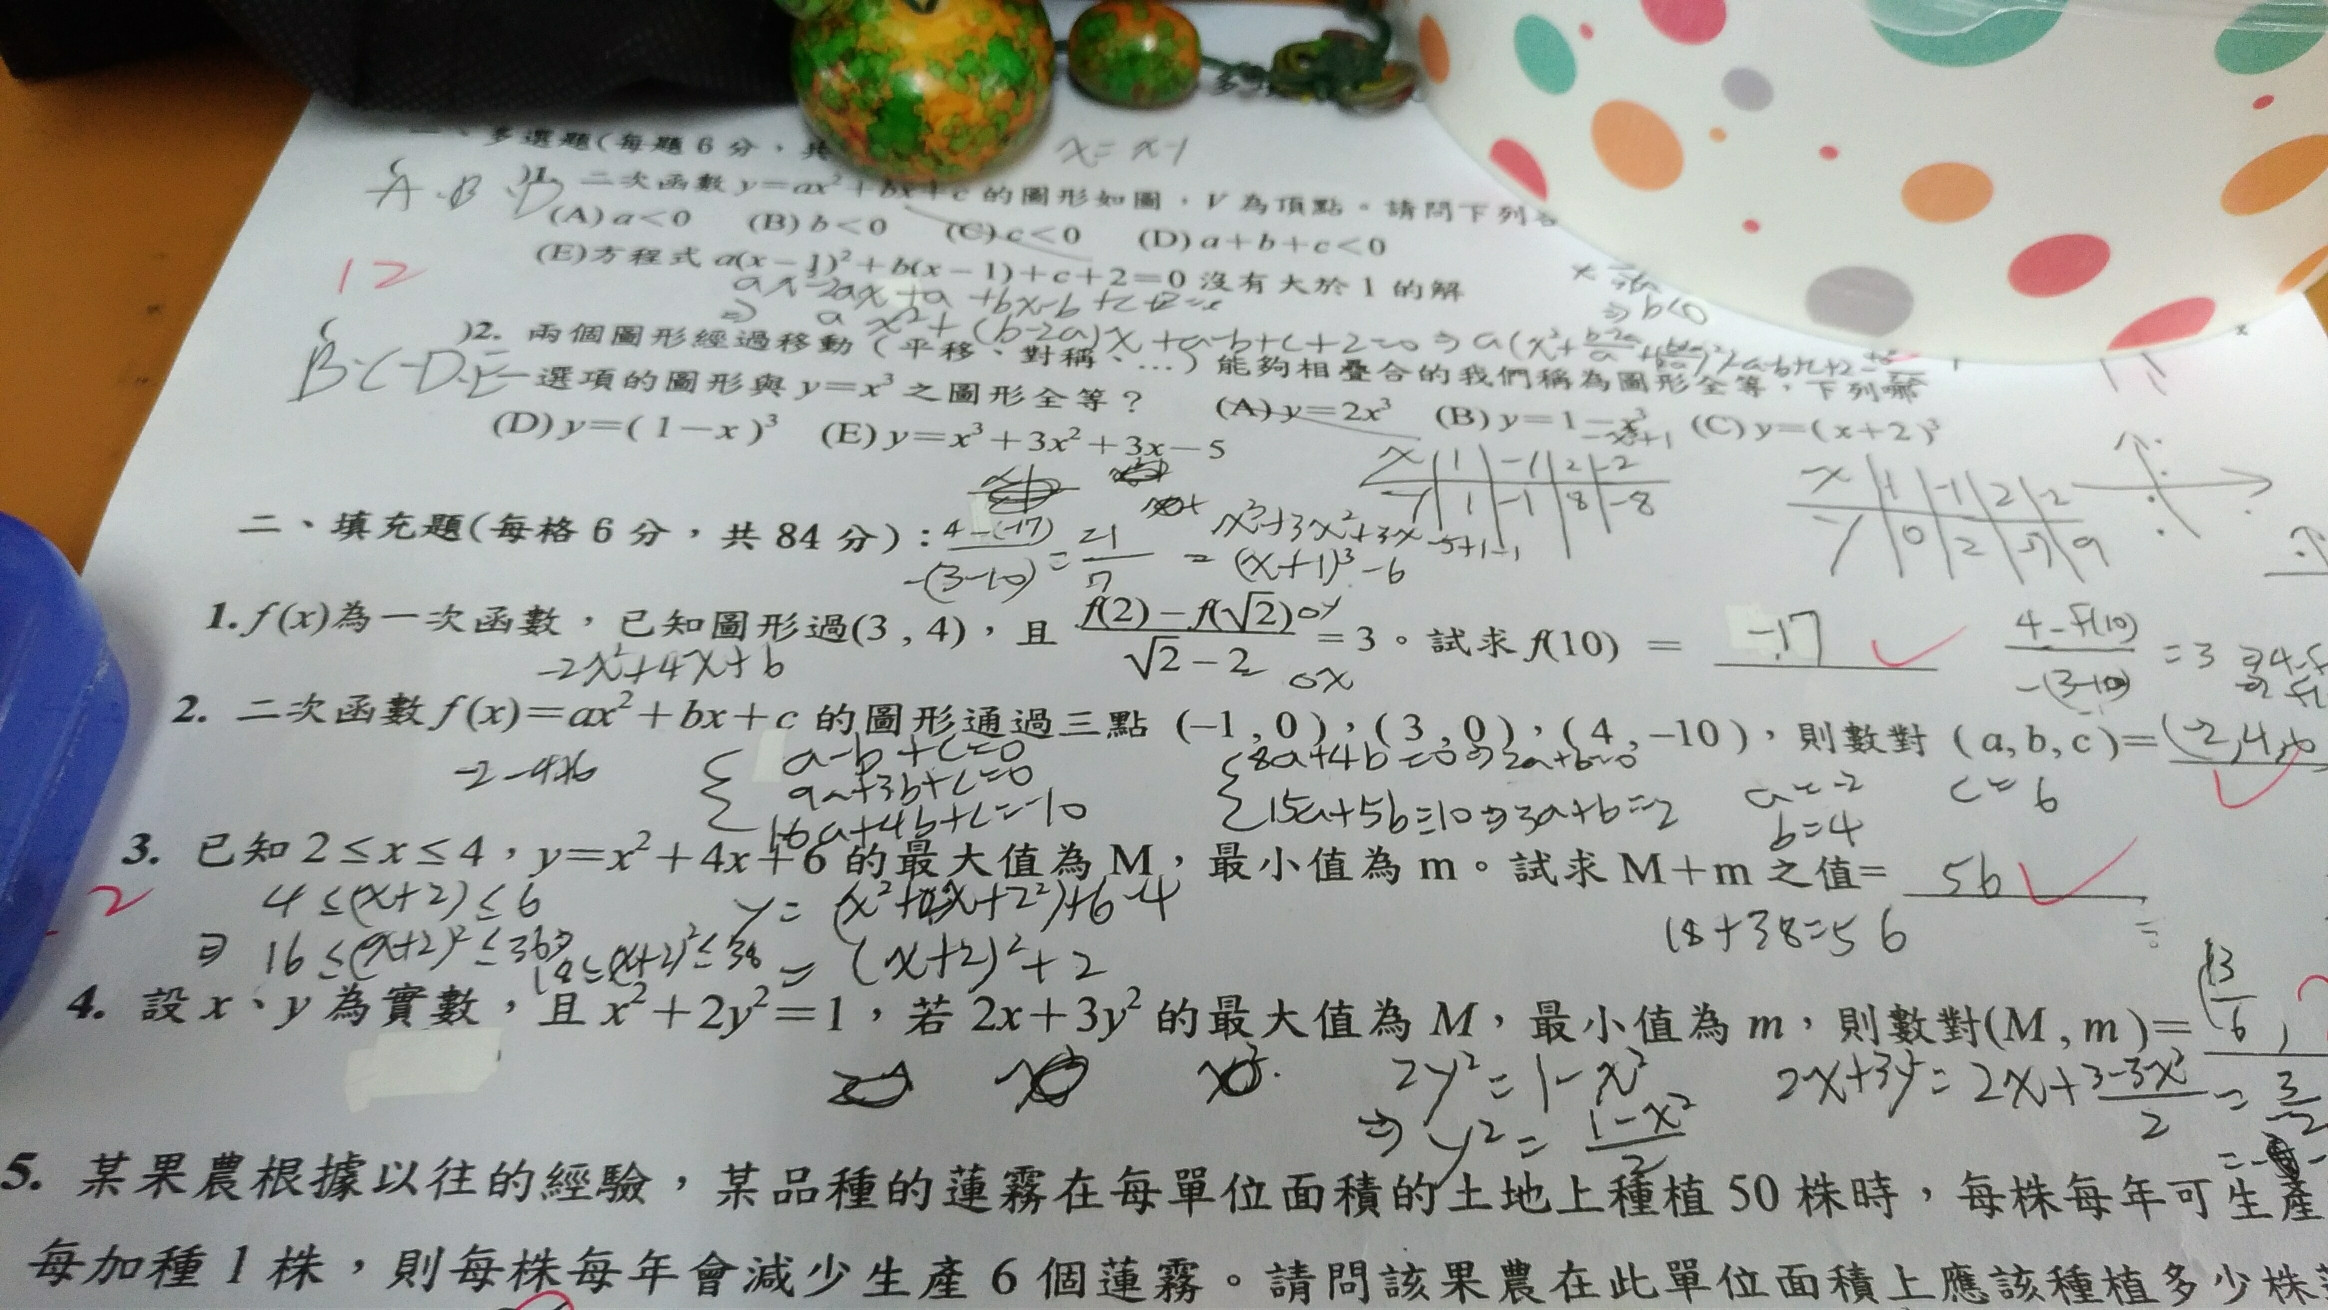 多選題(每題6分，共
x=x-1
A.B.D
1. 二次函數 y=ax²+bx+c 的圖形如圖，V 為頂點。請問下列
(A) a<0 (B) b<0 (C) c<0 (D) a+b+c<0
(E)方程式 a(x-1)²+b(x-1)+c+2=0 沒有大於1的解
12
⇒b<0
⇒ a x²+(b-2a)x+a-b+c+2=0
B.C-D.E
)2. 兩個圖形經過移動(平移、對稱、…)能夠相疊合的我們稱為圖形全等，下列哪
一選項的圖形與 y=x³ 之圖形全等？ (A) y=2x³ (B) y=1-x³ (C) y=(x+2)³
-x³+1
(D) y=(1-x)³ (E) y=x³+3x²+3x-5
x 1 -1 2 -2
y 1 -1 8 -8
x 1 -1 2 -2
y 0 2 -7 9
二、填充題(每格6分，共84分)：
4-(-17)/-(3-10) = 21/7
x³+3x²+3x-5+1-1
= (x+1)³-6
1. f(x)為一次函數，已知圖形過(3,4)，且 f(2)-f(√2)/√2-2 =3。試求 f(10) = -17
△y
△x
4-f(10)/-(3-10) =3
-2x²+4x+6
2. 二次函數 f(x)=ax²+bx+c 的圖形通過三點 (-1,0)，(3,0)，(4,-10)，則數對 (a,b,c)=(-2,4,6
a-b+c=0
9a+3b+c=0
16a+4b+c=-10
8a+4b=0⇒2a+b=0
15a+5b=-10⇒3a+b=-2
a=-2
b=4
c=6
3. 已知 2≤x≤4，y=x²+4x+6 的最大值為 M，最小值為 m。試求 M+m 之值= 56
-2
4≤(x+2)≤6
⇒ 16≤(x+2)²≤36⇒
18≤(x+2)²≤38
y= (x²+4x+2²)+6-4
= (x+2)²+2
18+38=56
4. 設 x、y 為實數，且 x²+2y²=1，若 2x+3y² 的最大值為 M，最小值為 m，則數對(M,m)=
(13/6,
2y²=1-x²
⇒ y²= 1-x²/2
2x+3y²=2x+ 3-3x²/2 =
5. 某果農根據以往的經驗，某品種的蓮霧在每單位面積的土地上種植50株時，每株每年可生產
每加種1株，則每株每年會減少生產6個蓮霧。請問該果農在此單位面積上應該種植多少株